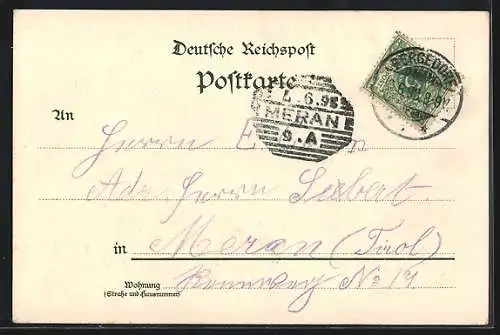 Deutsche Reichspost
Postkarte
BERGEDORF
4.6.98
MERAN
9.A
An
Herrn E
Adr. Herrn Seibert
in Meran (Tirol)
Wohnung
(Straße und Hausnummer)
Rennweg No 14.